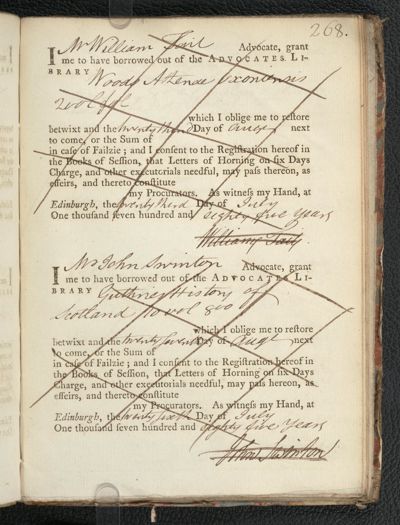 268.
I Mr William Tait Advocate, grant
me to have borrowed out of the ADVOCATES LI-
BRARY Woods Athenae Oxoniensis
2 vol
which I oblige me to reſtore
betwixt and the twenty third Day of August next
to come, or the Sum of
in caſe of Failzie; and I conſent to the Regiſtration hereof in
the Books of Seſſion, that Letters of Horning on ſix Days
Charge, and other executorials needful, may paſs thereon, as
effeirs, and thereto conſtitute
my Procurators. As witneſs my Hand, at
Edinburgh, the twenty third Day of July
One thouſand ſeven hundred and eighty five Years
William Tait.
I Mr John Swinton Advocate, grant
me to have borrowed out of the ADVOCATES LI-
BRARY Guthries History of
Scotland 10 vol 8vo
which I oblige me to reſtore
betwixt and the twenty Day of Augt next
to come, or the Sum of
in caſe of Failzie; and I conſent to the Regiſtration hereof in
the Books of Seſſion, that Letters of Horning on ſix Days
Charge, and other executorials needful, may paſs hereon, as
effeirs, and thereto conſtitute
my Procurators. As witneſs my Hand, at
Edinburgh, the twenty sixth Day of July
One thouſand ſeven hundred and eighty five Years
John Swinton